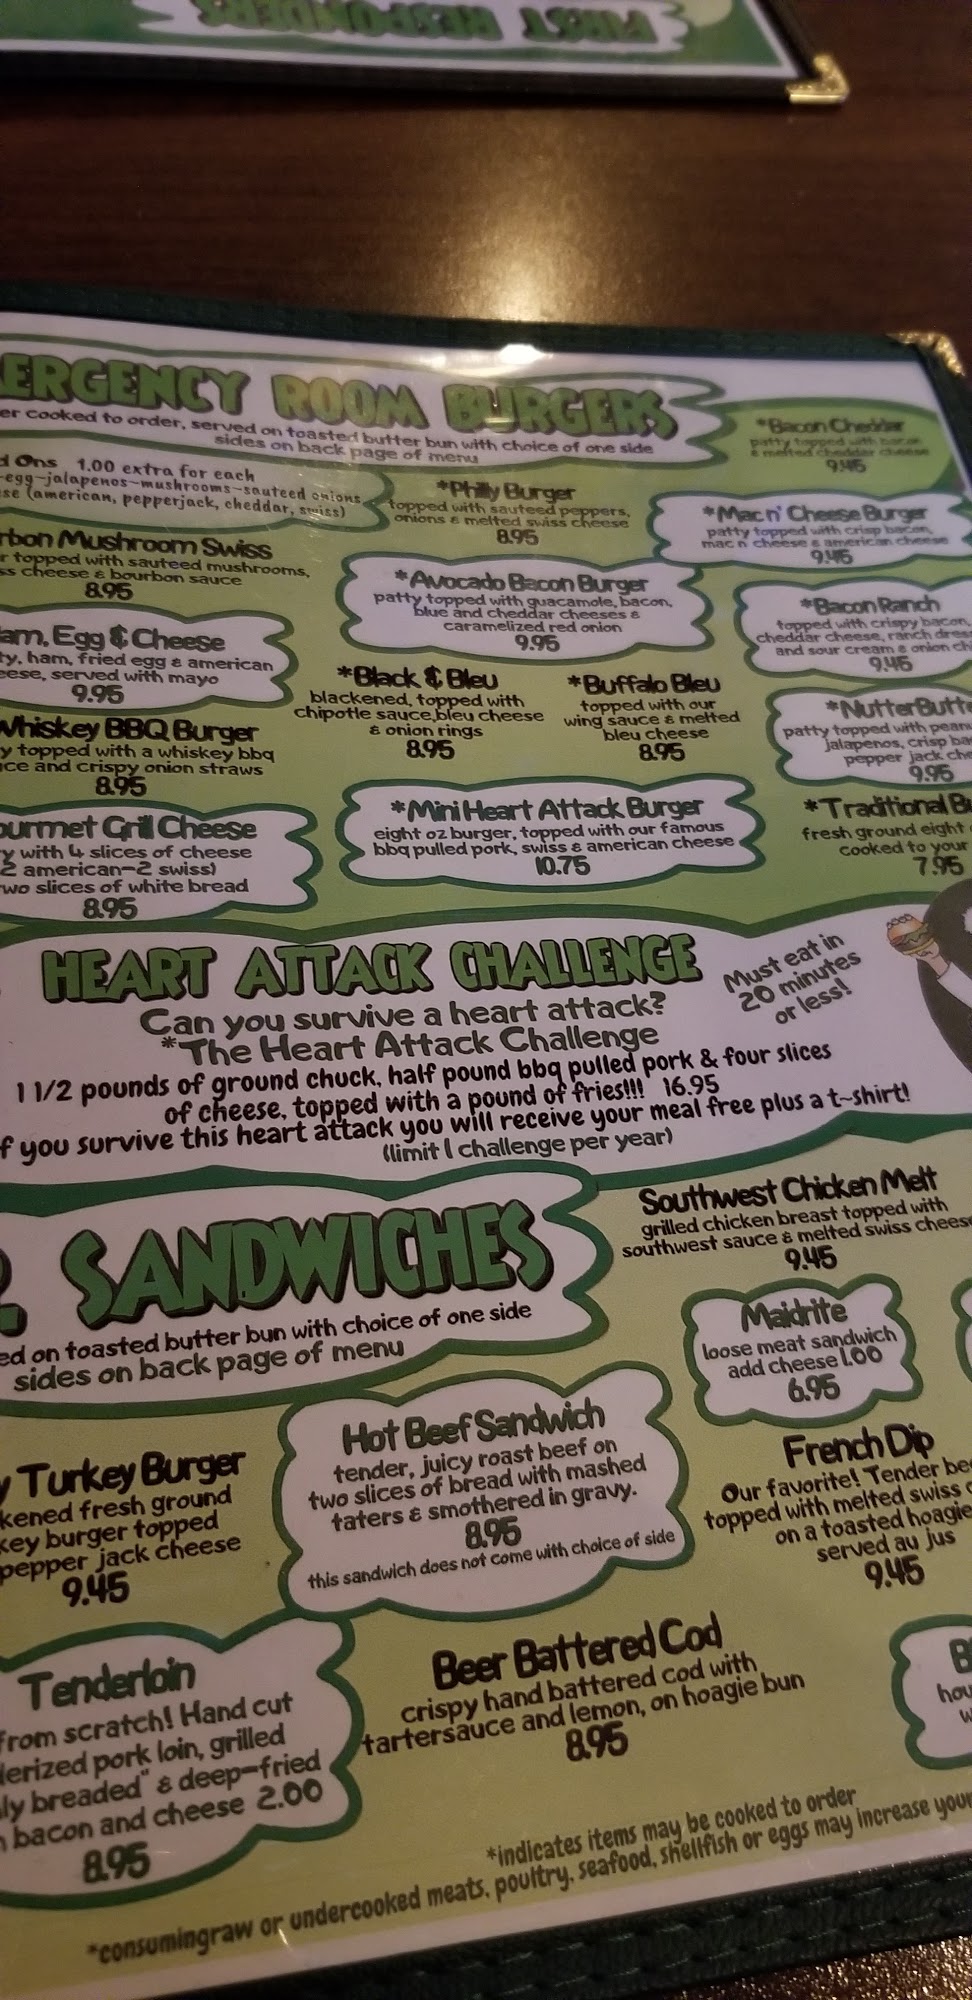 FIRST RESPONDERS
ERGENCY ROOM BURGERS
er cooked to order, served on toasted butter bun with choice of one side
sides on back page of menu
d Ons 1.00 extra for each
-egg~jalapenos~mushrooms~sauteed onions
se (american, pepperjack, cheddar, swiss)
rbon Mushroom Swiss
r topped with sauteed mushrooms,
ss cheese & bourbon sauce
8.95
am, Egg & Cheese
ty, ham, fried egg & american
eese, served with mayo
9.95
Whiskey BBQ Burger
y topped with a whiskey bbq
ce and crispy onion straws
8.95
ourmet Grill Cheese
y with 4 slices of cheese
2 american-2 swiss)
wo slices of white bread
8.95
*Philly Burger
topped with sauteed peppers,
onions & melted swiss cheese
8.95
*Avocado Bacon Burger
patty topped with guacamole, bacon,
blue and cheddar cheeses &
caramelized red onion
9.95
*Black & Bleu
blackened, topped with
chipotle sauce, bleu cheese
& onion rings
8.95
*Buffalo Bleu
topped with our
wing sauce & melted
bleu cheese
8.95
*Mini Heart Attack Burger
eight oz burger, topped with our famous
bbq pulled pork, swiss & american cheese
10.75
*Bacon Cheddar
patty topped with bacon
& melted cheddar cheese
9.45
*Mac n' Cheese Burger
patty topped with crisp bacon,
mac n cheese & american cheese
9.45
*Bacon Ranch
topped with crispy bacon,
cheddar cheese, ranch dres
and sour cream & onion ch
9.45
*NutterButt
patty topped with pean
jalapenos, crisp ba
pepper jack che
9.95
*Traditional B
fresh ground eight
cooked to your
7.95
HEART ATTACK CHALLENGE
Must eat in
20 minutes
or less!
Can you survive a heart attack?
*The Heart Attack Challenge
1 1/2 pounds of ground chuck, half pound bbq pulled pork & four slices
of cheese, topped with a pound of fries!!! 16.95
f you survive this heart attack you will receive your meal free plus a t-shirt!
(limit 1 challenge per year)
. SANDWICHES
ed on toasted butter bun with choice of one side
sides on back page of menu
Southwest Chicken Melt
grilled chicken breast topped with
southwest sauce & melted swiss chees
9.45
Maidrite
loose meat sandwich
add cheese 1.00
6.95
y Turkey Burger
kened fresh ground
key burger topped
pepper jack cheese
9.45
Hot Beef Sandwich
tender, juicy roast beef on
two slices of bread with mashed
taters & smothered in gravy.
8.95
this sandwich does not come with choice of side
French Dip
Our favorite! Tender be
topped with melted swiss
on a toasted hoagie
served au jus
9.45
Tenderloin
from scratch! Hand cut
lerized pork loin, grilled
ly breaded" & deep-fried
n bacon and cheese 2.00
8.95
Beer Battered Cod
crispy hand battered cod with
tartersauce and lemon, on hoagie bun
8.95
B
hou
w
*indicates items may be cooked to order
*consumingraw or undercooked meats, poultry, seafood, shellfish or eggs may increase your